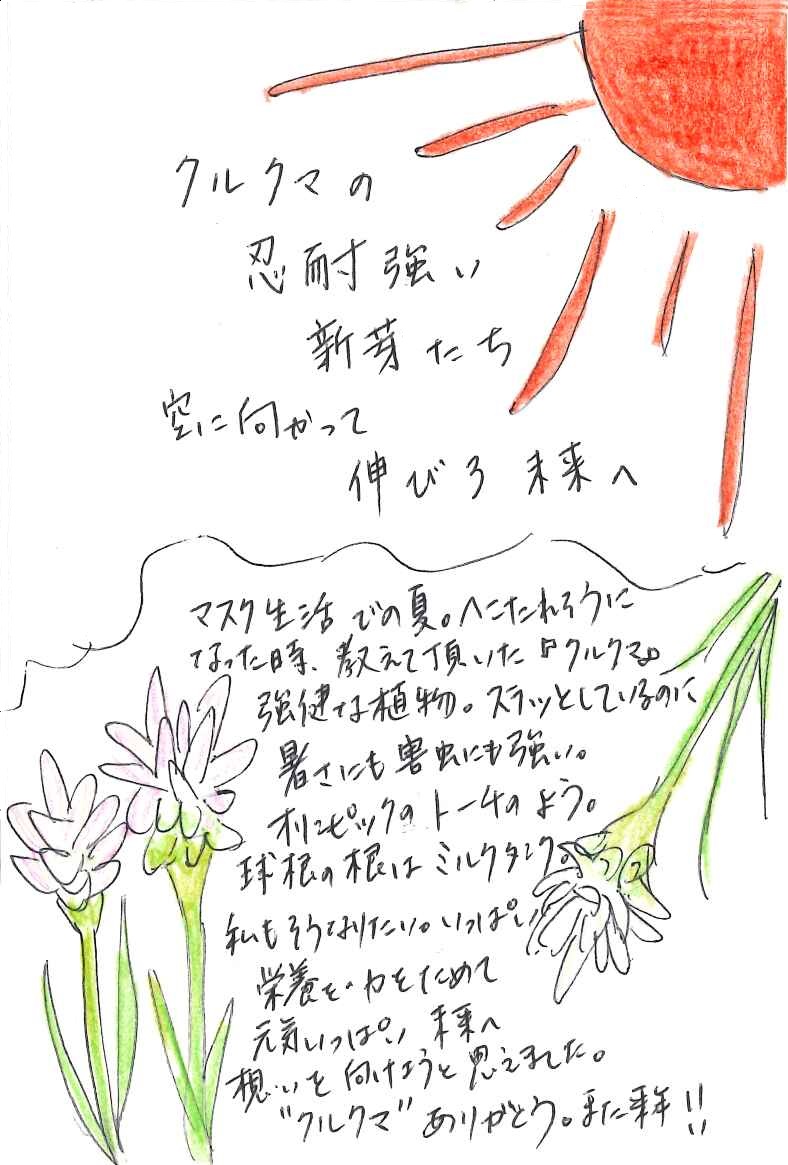 クルクマの
忍耐強い
新芽たち
空に向かって
伸びろ 未来へ
マスク生活での夏。へこたれそうに
なった時、教えて頂いた『クルクマ』
強健な植物。スラッとしているのに
暑さにも害虫にも強い。
オリンピックのトーチのよう。
球根の根はミルクタンク。
私もそうなりたい。いっぱい
栄養を・力をためて
元気いっぱい 未来へ
想いを向けようと思えました。
"クルクマ" ありがとう。また来年!!